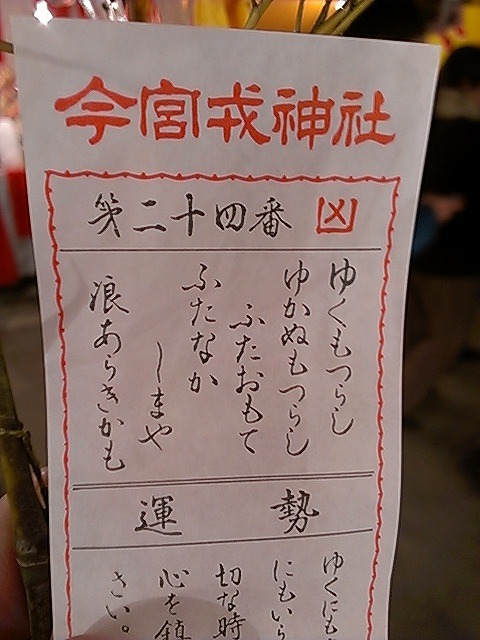 今宮戎神社
第二十四番 凶
ゆくもつらし
ゆかぬもつらし
ふたおもて
ふたなか
しまや
浪あらきかも
運勢
ゆくにも
にもいら
切な時
心を鎮
さい。